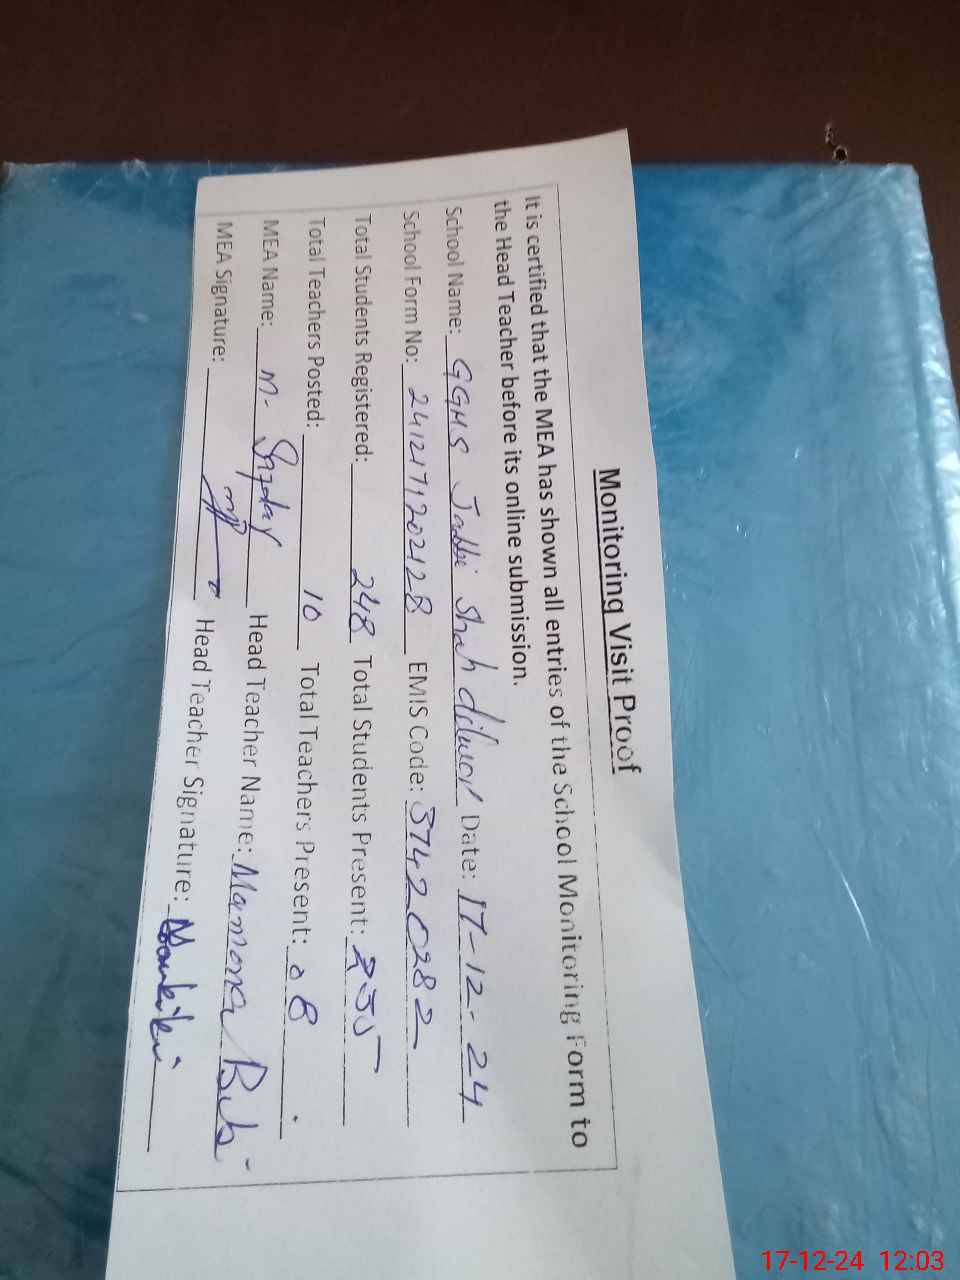 Monitoring Visit Proof
It is certified that the MEA has shown all entries of the School Monitoring Form to
the Head Teacher before its online submission.
School Name: GGMS Jabbi Shah dilawar Date: 17-12-24
School Form No: 241217120212B EMIS Code: 37420282
Total Students Registered: 248 Total Students Present: 235
Total Teachers Posted: 10 Total Teachers Present: 08
MEA Name: M- Head Teacher Name: Mamona Bibi
MEA Signature: Head Teacher Signature:
17-12-24 12:03